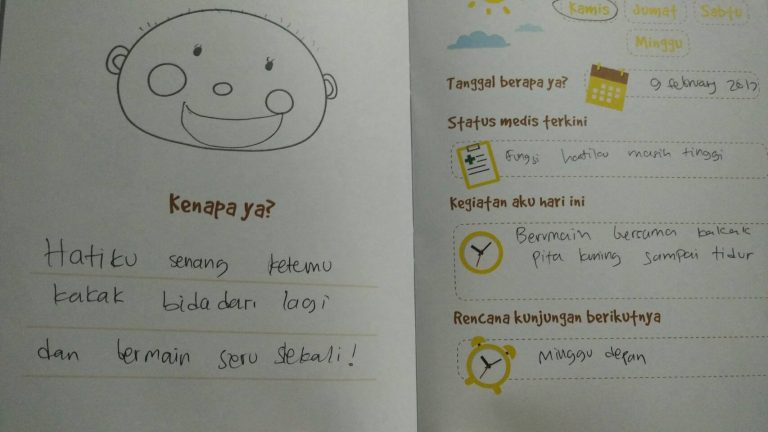 Kenapa ya?
Hatiku senang ketemu
kakak bidadari lagi
dan bermain seru sekali!
Kamis Jumat Sabtu
Minggu
Tanggal berapa ya?
9 February 2017
Status medis terkini
Fungsi hatiku masih tinggi
Kegiatan aku hari ini
Bermain bersama kakak
pita kuning sampai tidur
Rencana kunjungan berikutnya
Minggu depan